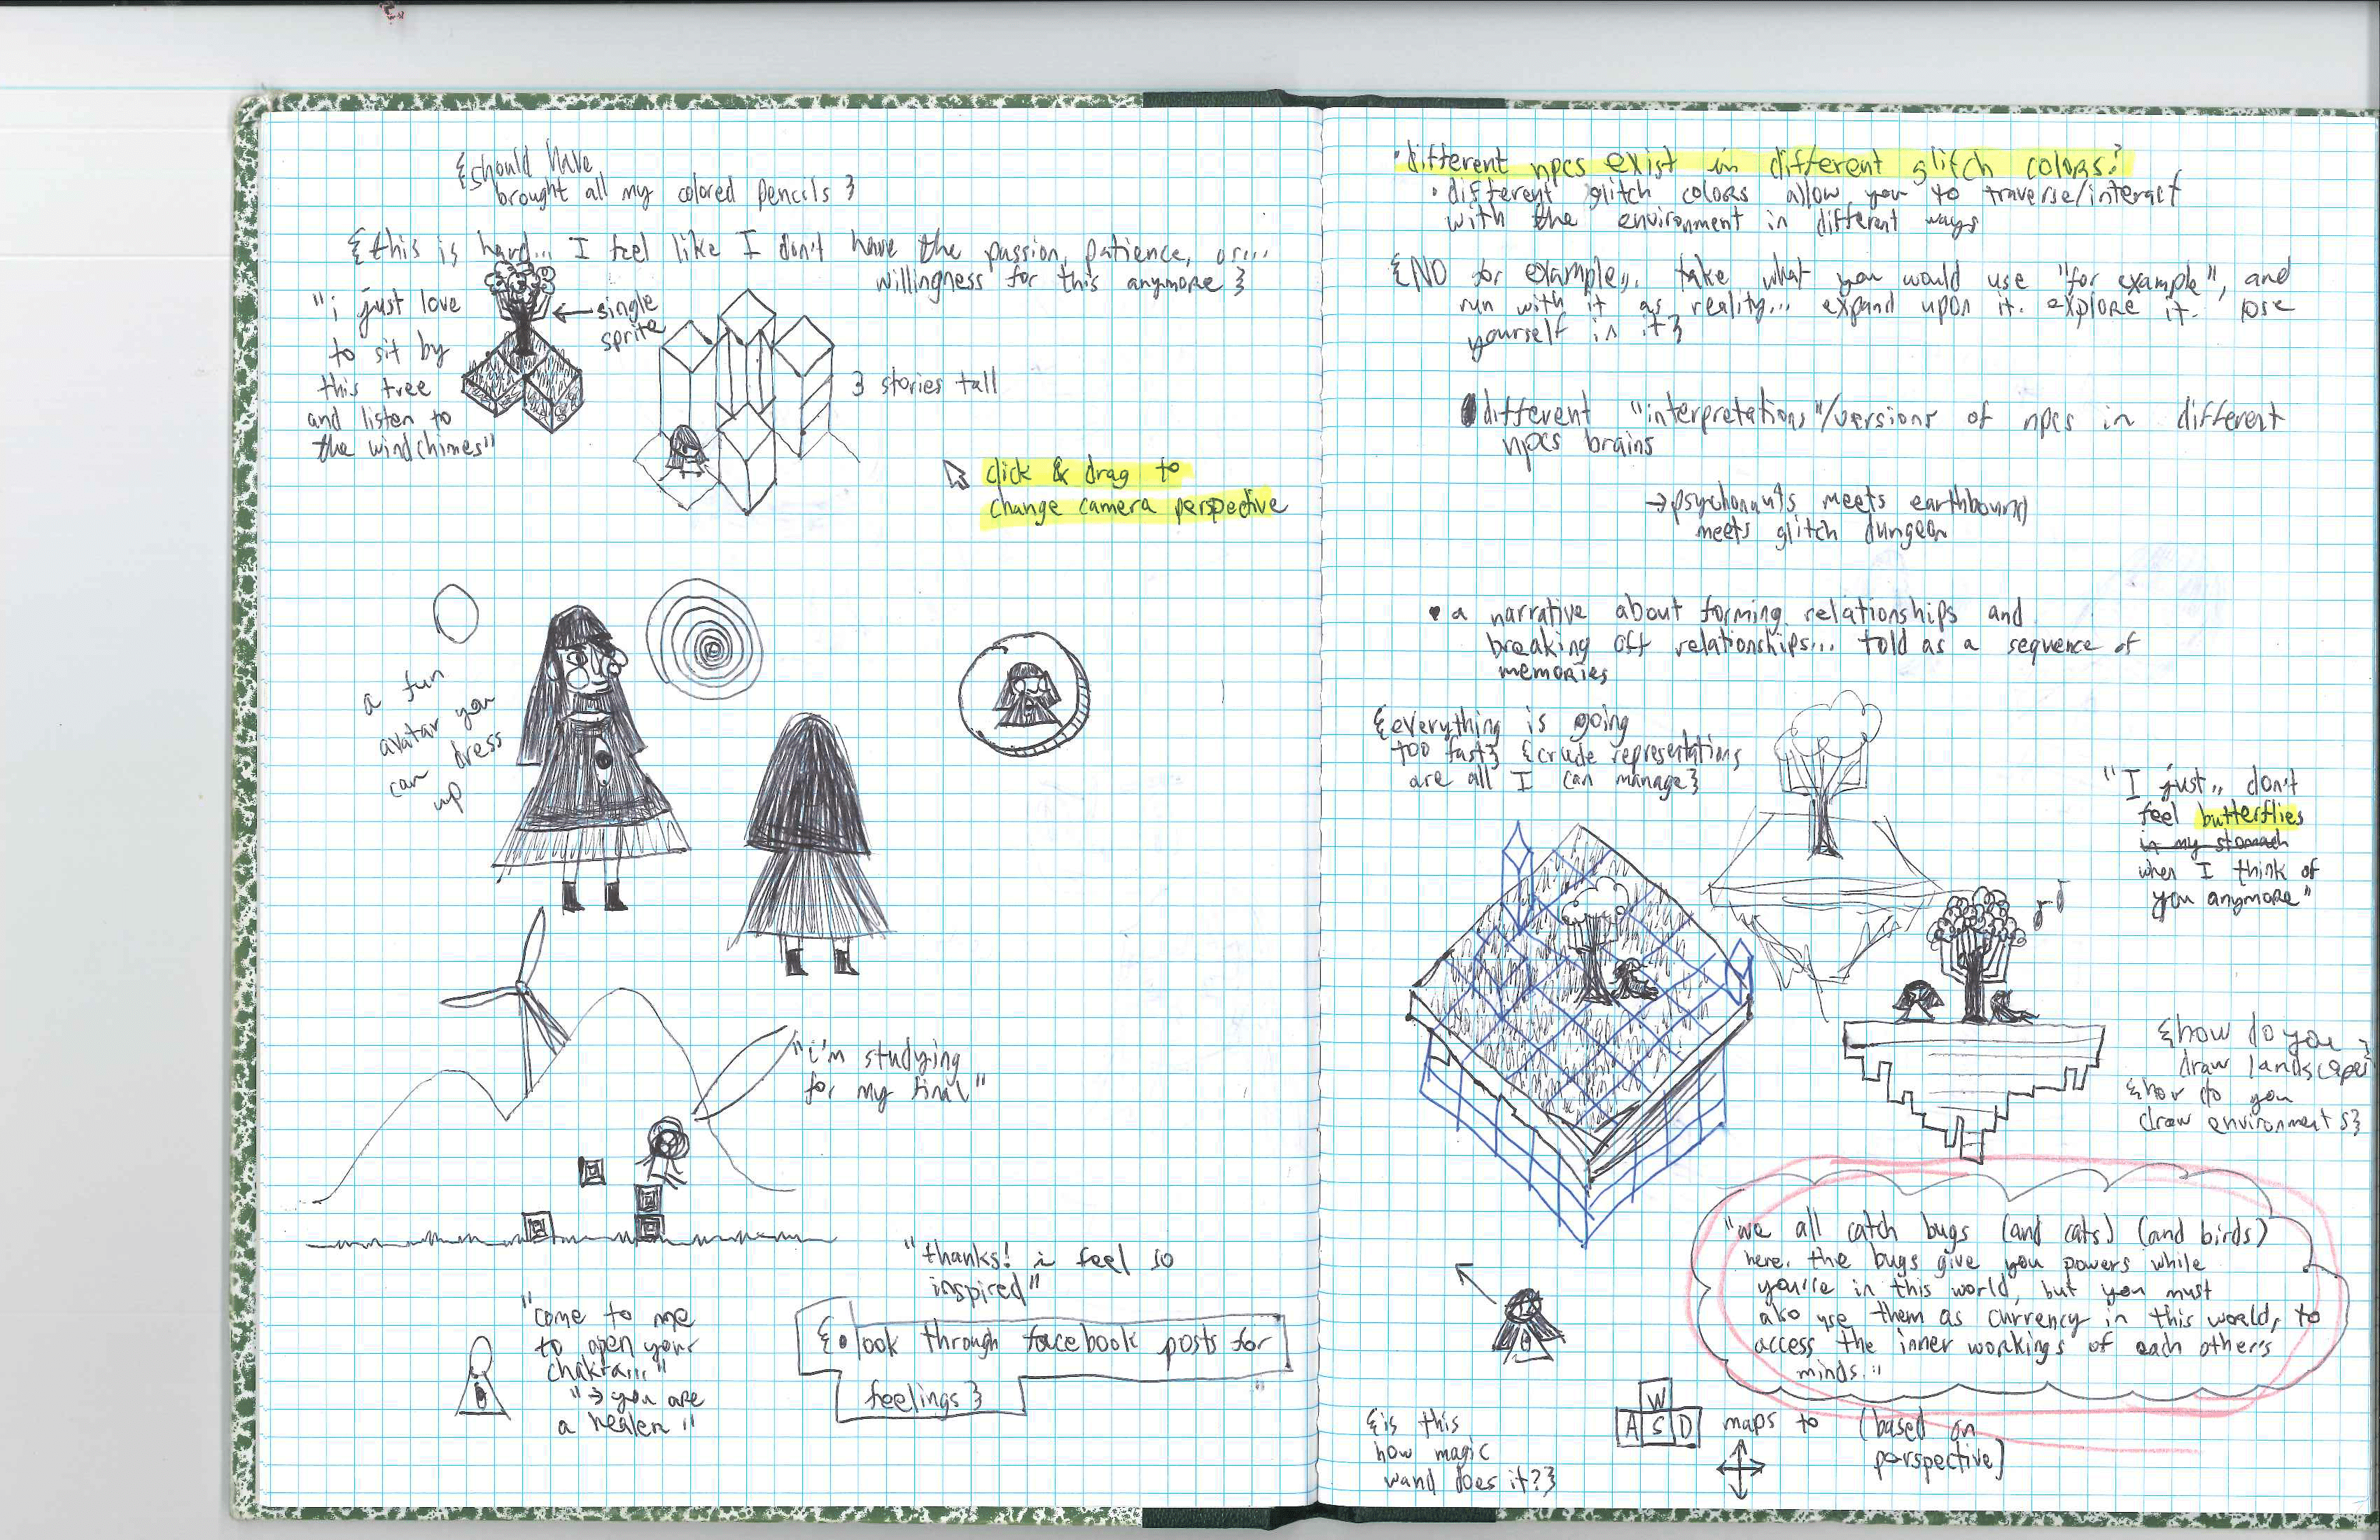 {should have
brought all my colored pencils}
{this is hard... I feel like I don't have the passion, patience, or...
willingness for this anymore}
"i just love
to sit by
this tree
and listen to
the windchimes"
← single
sprite
3 stories tall
click & drag to
change camera perspective
a fun
avatar you
can dress
up
"i'm studying
for my final"
"thanks! i feel so
inspired"
"come to me
to open your
chakra..."
"→ you are
a healer"
{• look through facebook posts for
feelings}
• different npcs exist in different glitch colors?
• different glitch colors allow you to traverse/interact
with the environment in different ways
{NO for example,. take what you would use "for example", and
run with it as reality... expand upon it. explore it. lose
yourself in it}
• different "interpretations"/versions of npcs in different
npcs brains
→ psychonauts meets earthbound
meets glitch dungeon
• a narrative about forming relationships and
breaking off relationships... told as a sequence of
memories
{everything is going
too fast} {crude representations
are all I can manage}
"I just.. don't
feel butterflies
in my stomach
when I think of
you anymore"
{how do you
draw landscape}
{how do you
draw environments}
"we all catch bugs (and cats) (and birds)
here. the bugs give you powers while
you're in this world, but you must
also use them as currency in this world, to
access the inner workings of each other's
minds."
{is this
how magic
wand does it?}
W
A S D maps to (based on
perspective)